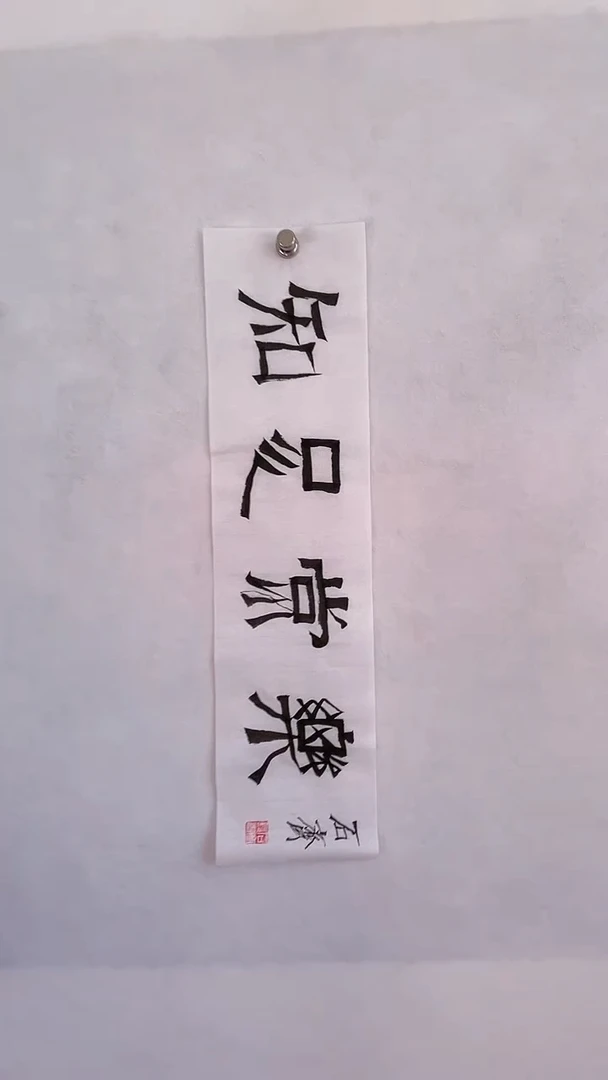 知足常樂
石齋